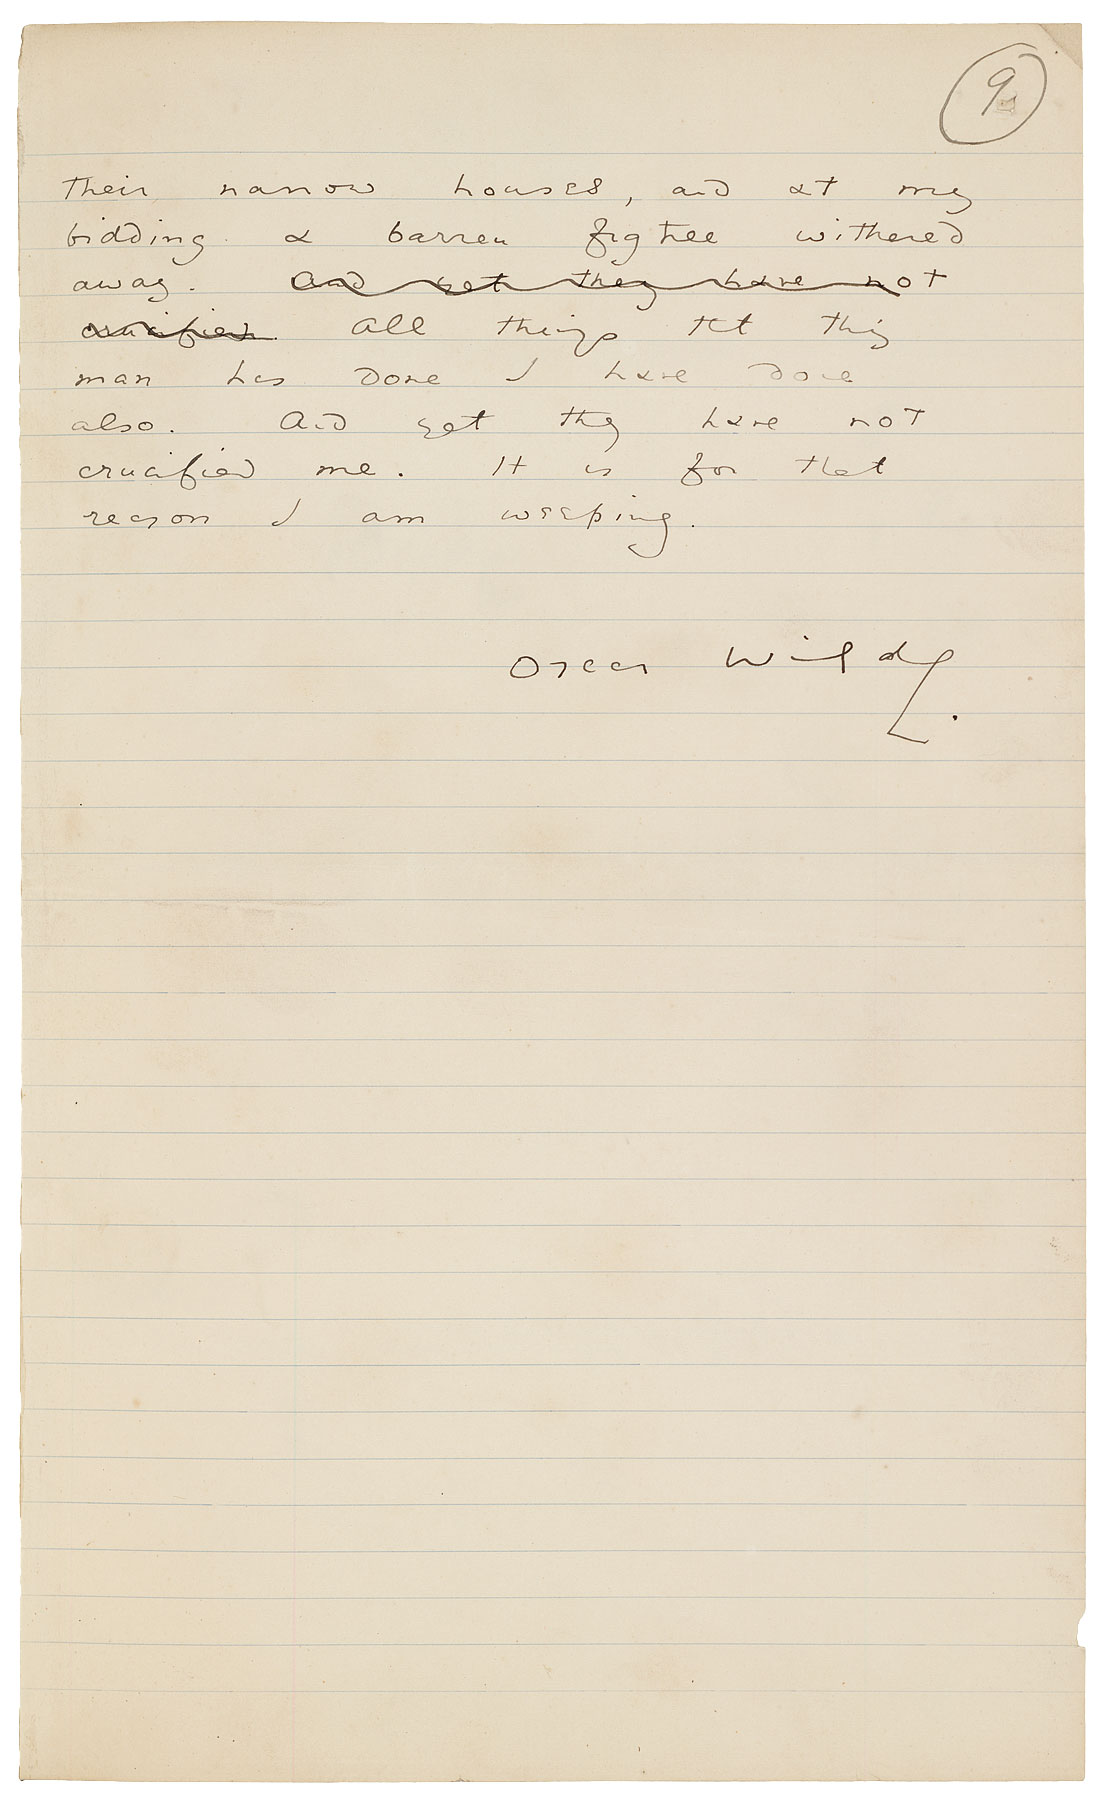 9
their narrow houses, and at my
bidding a barren fig tree withered
away. And yet they have not
crucified. All things that this
man has done I have done
also. And yet they have not
crucified me. It is for that
reason I am weeping.
Oscar Wilde.